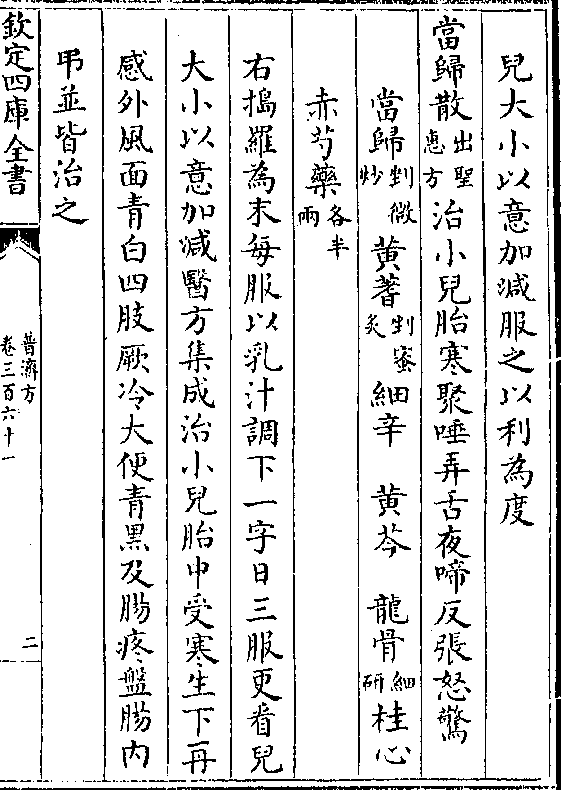 兒大小以意加減服之以利為度
當歸散出聖惠方治小兒胎寒聚唾弄舌夜啼反張怒驚
當歸剉微炒黃蓍剉蜜炙細辛 黃芩 龍骨細研桂心
赤芍藥各半兩
右搗羅為末每服以乳汁調下一字日三服更看兒
大小以意加減醫方集成治小兒胎中受寒生下再
感外風面青白四肢厥冷大便青黑及腸疼盤腸內
吊並皆治之
欽定四庫全書
普濟方
卷三百六十一
二